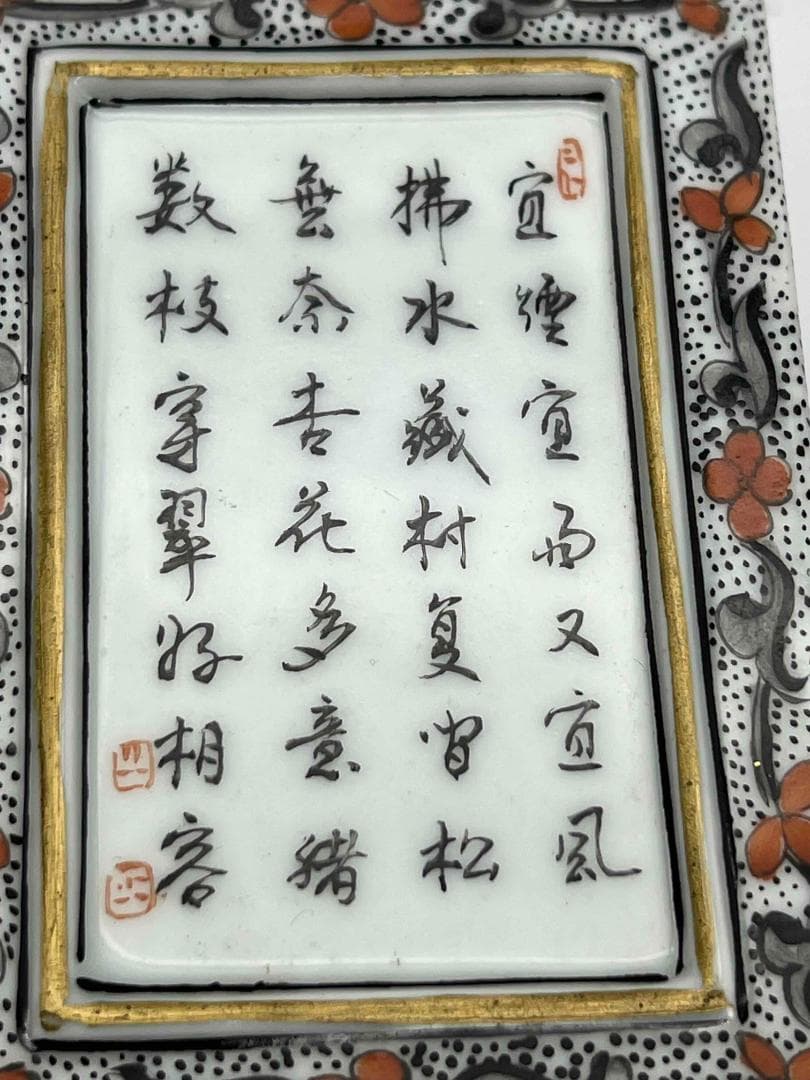 宜煙宜雨又宜風
拂水藏村复間松
無奈杏花多意緒
数枝穿翠好相容